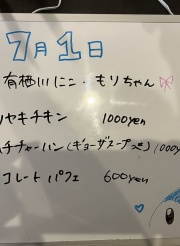 7月1日
有栖川にこ・もりちゃん
ヤキチキン 1000yen
チャーハン(ギョーザスープつき) 1000
コレートパフェ 600yen